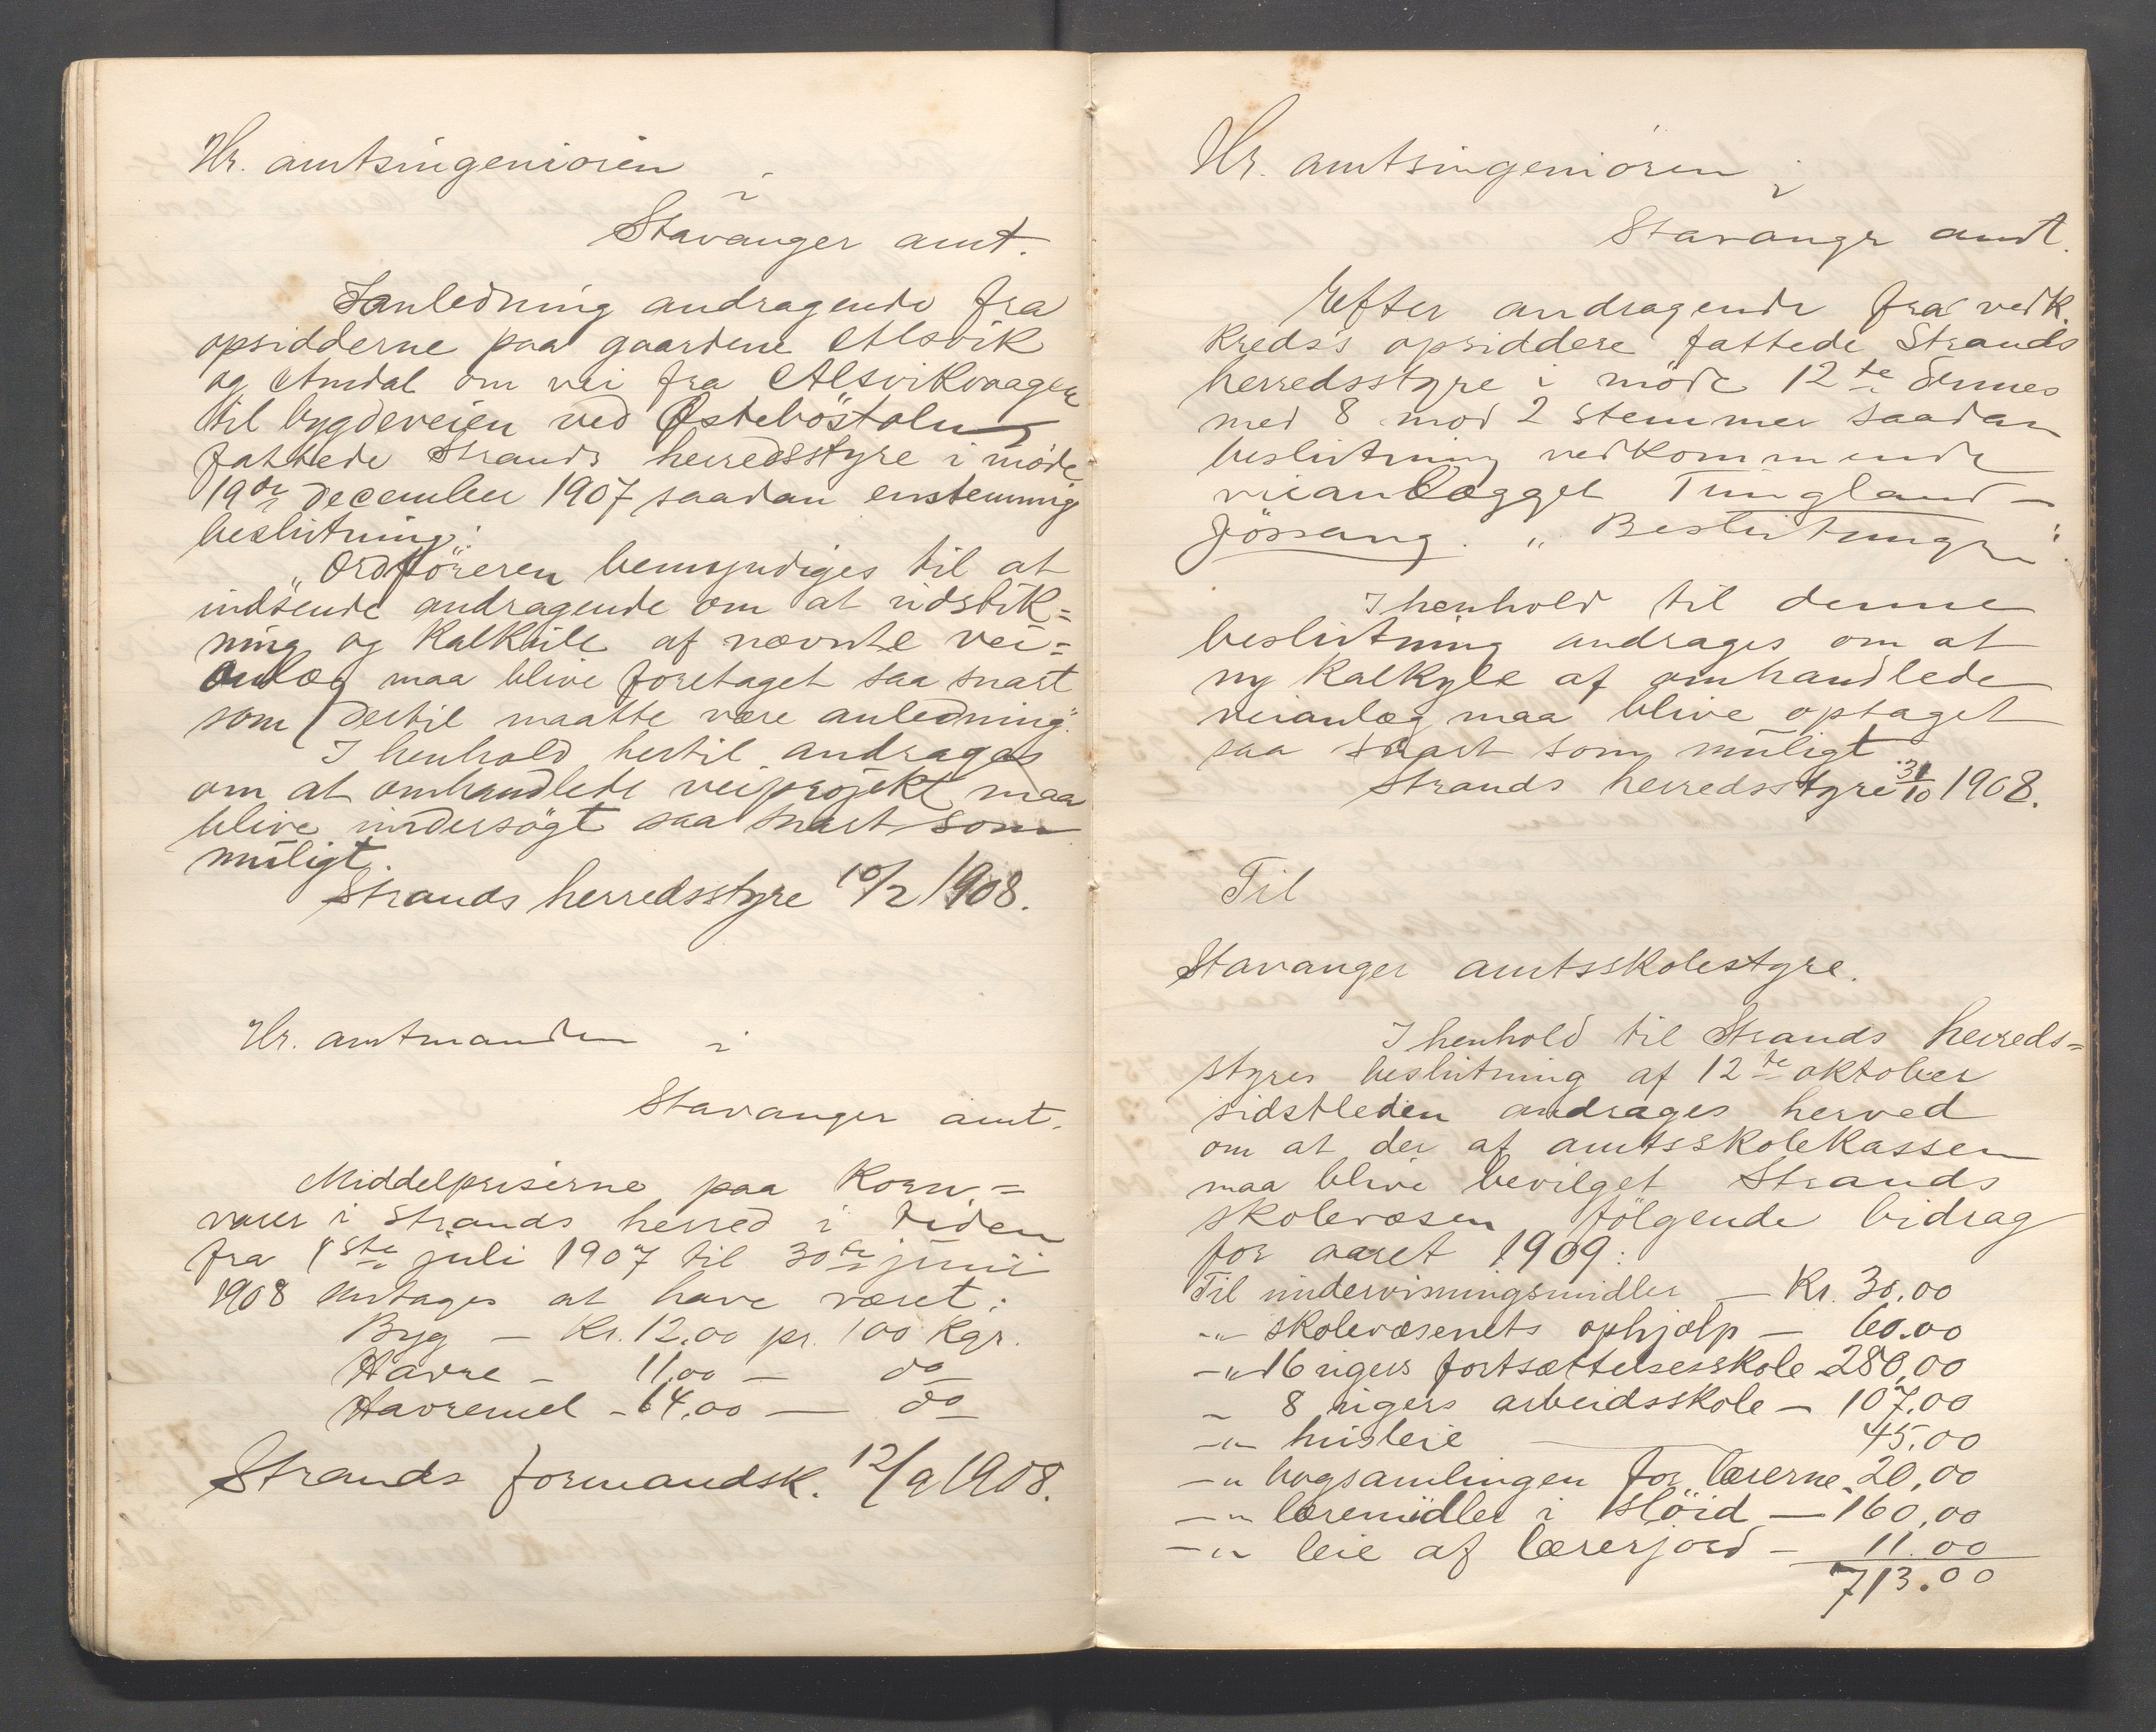 Hr. amtsingeniøren
i
Stavanger amt.
Ianledning andragende fra
opsidderne paa gaardene Alsvik
og Amdal om vei fra Alsvikvaagen
til bygdeveien ved Østebøstølen
fattede Strands herredsstyre i møde
19de december 1907 saadan enstemmig
beslutning:
"Ordføreren bemyndiges til at
indsende andragende om at udstik=
ning og kalkule af nævnte vei=
anlæg maa blive foretaget saa snart
som dertil maatte være anledning".
I henhold hertil andrages
om at omhandlede veiprojekt maa
blive undersøgt saa snart som
muligt.
Strands herredsstyre 10/2 1908.
Hr. amtmanden i
Stavanger amt.
Middelpriserne paa korn=
varer i Strands herred i tiden
fra 1ste juli 1907 til 30te juni
1908 antages at have været:
Byg — Kr. 12.00 pr. 100 Kgr.
Havre — 11,00 — do
Havremel — 14,00 — do
Strands formandsk. 12/9 1908.
Hr. amtsingeniøren i
Stavanger amt.
Efter andragende fra vedk.
kreds's opsiddere fattede Strands
herredsstyre i møde 12te dennes
med 8 mod 2 stemmer saadan
beslutning vedkommende
veianlægget Tungland—
Jøssang. "Beslutningen":
I henhold til denne
beslutning andrages om at
ny kalkyle af omhandlede
veianlæg maa blive optaget
saa snart som muligt
Strands herredsstyre 31/10 1908.
Til
Stavanger amtsskolestyre.
I henhold til Strands herreds=
styres beslutning af 12te oktober
sidstleden andrages herved
om at der af amtsskolekassen
maa blive bevilget Strands
skolevæsen følgende bidrag
for aaret 1909:
Til undervisningsmidler — Kr. 30,00
-"- skolevæsenets ophjælp — 60.00
-"- 16 ugers fortsættelsesskole 280,00
- 8 ugers arbeidsskole — 107,00
-"- husleie — 45.00
-"- bogsamlingen for lærerne 20,00
-"- læremidler i sløid — 160,00
-"- leie af lærerjord — 11.00
713.00